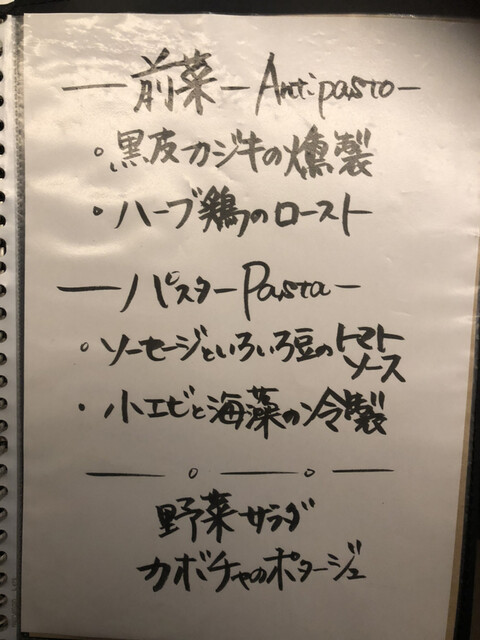 — 前菜 — Antipasto —
・黒皮カジキの燻製
・ハーブ鶏のロースト
— パスタ — Pasta —
・ソーセージといろいろ豆のトマト
ソース
・小エビと海藻の冷製
野菜サラダ
カボチャのポタージュ